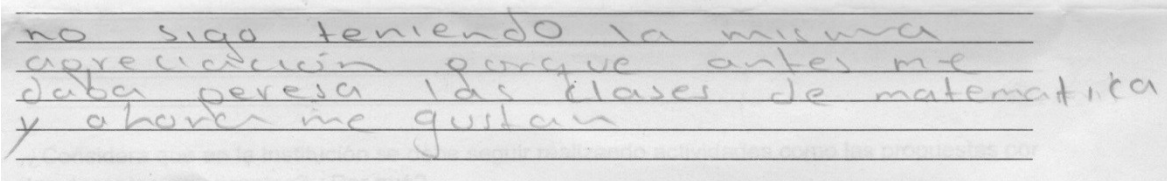 no sigo teniendo la misma
apreciación porque antes me
daba peresa las clases de matematica
y ahora me gustan
¿Considera que en la Institución se debe seguir realizando actividades como las propuestas por